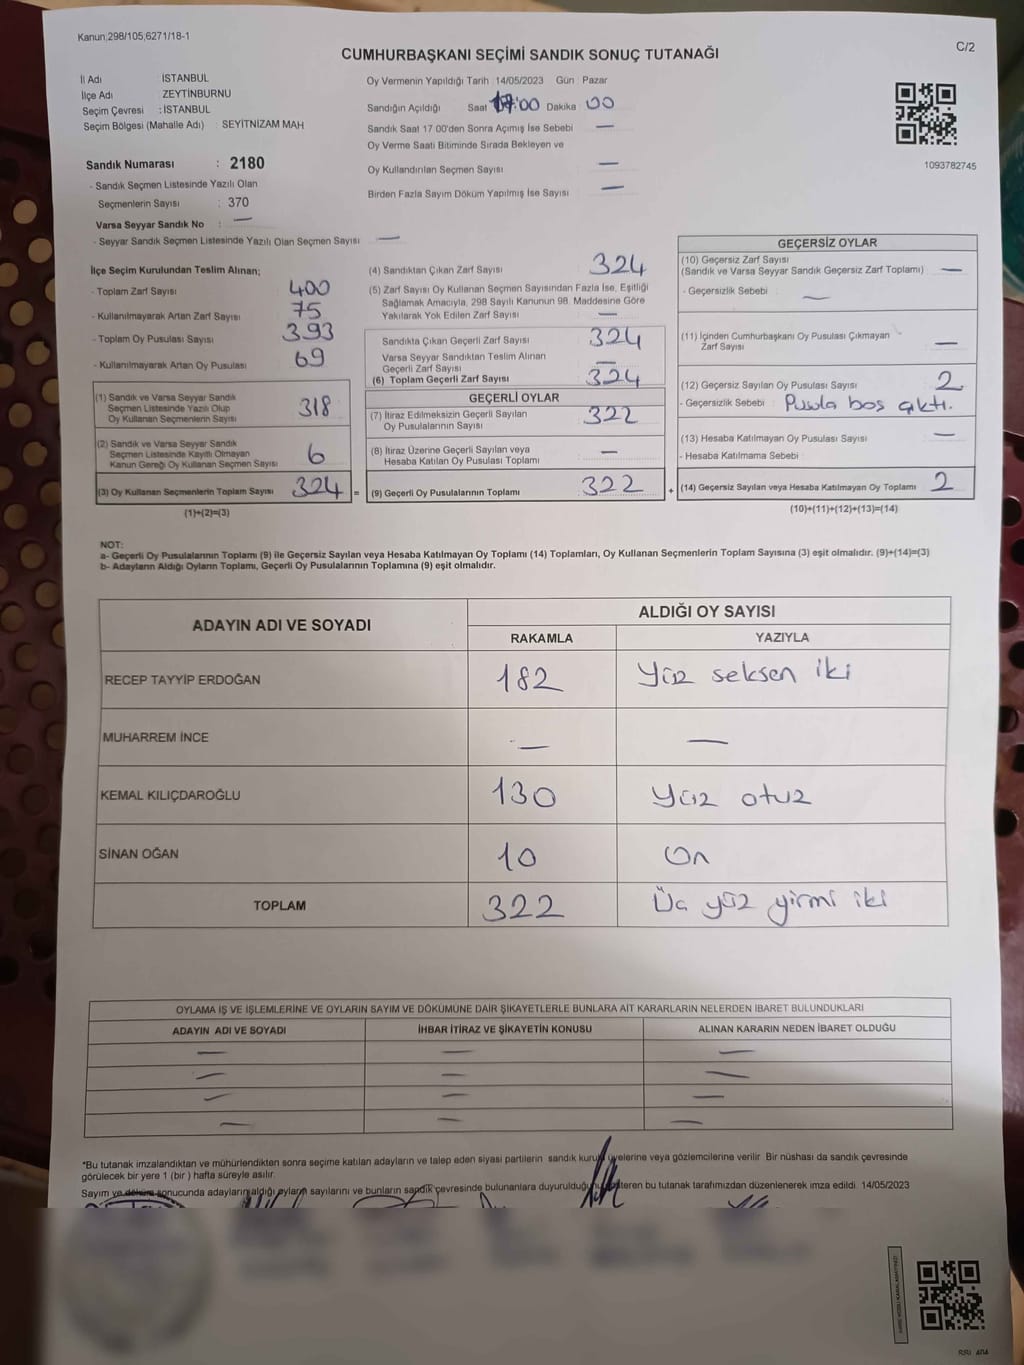 Kanun,298/105,6271/18-1
C/2
CUMHURBAŞKANI SEÇİMİ SANDIK SONUÇ TUTANAĞI
İl Adı : İSTANBUL
İlçe Adı : ZEYTİNBURNU
Seçim Çevresi : İSTANBUL
Seçim Bölgesi (Mahalle Adı) SEYİTNİZAM MAH
Sandık Numarası : 2180
- Sandık Seçmen Listesinde Yazılı Olan
Seçmenlerin Sayısı : 370
Varsa Seyyar Sandık No : —
- Seyyar Sandık Seçmen Listesinde Yazılı Olan Seçmen Sayısı —
Oy Vermenin Yapıldığı Tarih : 14/05/2023 Gün : Pazar
Sandığın Açıldığı Saat :00 Dakika : 00
Sandık Saat 17 00'den Sonra Açımış İse Sebebi —
Oy Verme Saati Bitiminde Sırada Bekleyen ve
Oy Kullandırılan Seçmen Sayısı —
Birden Fazla Sayım Döküm Yapılmış İse Sayısı —
1093782745
İlçe Seçim Kurulundan Teslim Alınan;
- Toplam Zarf Sayısı 400
- Kullanılmayarak Artan Zarf Sayısı 75
- Toplam Oy Pusulası Sayısı 393
- Kullanılmayarak Artan Oy Pusulası 69
(1) Sandık ve Varsa Seyyar Sandık
Seçmen Listesinde Yazılı Olup
Oy Kullanan Seçmenlerin Sayısı 318
(2) Sandık ve Varsa Seyyar Sandık
Seçmen Listesinde Kayıtlı Olmayan
Kanun Gereği Oy Kullanan Seçmen Sayısı 6
(3) Oy Kullanan Seçmenlerin Toplam Sayısı 324 =
(1)+(2)=(3)
(4) Sandıktan Çıkan Zarf Sayısı 324
(5) Zarf Sayısı Oy Kullanan Seçmen Sayısından Fazla İse, Eşitliği
Sağlamak Amacıyla, 298 Sayılı Kanunun 98. Maddesine Göre
Yakılarak Yok Edilen Zarf Sayısı —
Sandıkta Çıkan Geçerli Zarf Sayısı 324
Varsa Seyyar Sandıktan Teslim Alınan
Geçerli Zarf Sayısı —
(6) Toplam Geçerli Zarf Sayısı 324
GEÇERLİ OYLAR
(7) İtiraz Edilmeksizin Geçerli Sayılan
Oy Pusulalarının Sayısı 322
(8) İtiraz Üzerine Geçerli Sayılan veya
Hesaba Katılan Oy Pusulası Toplamı —
(9) Geçerli Oy Pusulalarının Toplamı 322 +
GEÇERSİZ OYLAR
(10) Geçersiz Zarf Sayısı
(Sandık ve Varsa Seyyar Sandık Geçersiz Zarf Toplamı) —
- Geçersizlik Sebebi : —
(11) İçinden Cumhurbaşkanı Oy Pusulası Çıkmayan
Zarf Sayısı —
(12) Geçersiz Sayılan Oy Pusulası Sayısı 2
- Geçersizlik Sebebi : Pusula boş çıktı.
(13) Hesaba Katılmayan Oy Pusulası Sayısı —
- Hesaba Katılmama Sebebi
(14) Geçersiz Sayılan veya Hesaba Katılmayan Oy Toplamı 2
(10)+(11)+(12)+(13)=(14)
NOT:
a- Geçerli Oy Pusulalarının Toplamı (9) ile Geçersiz Sayılan veya Hesaba Katılmayan Oy Toplamı (14) Toplamları, Oy Kullanan Seçmenlerin Toplam Sayısına (3) eşit olmalıdır. (9)+(14)=(3)
b- Adayların Aldığı Oyların Toplamı, Geçerli Oy Pusulalarının Toplamına (9) eşit olmalıdır.
ADAYIN ADI VE SOYADI
ALDIĞI OY SAYISI
RAKAMLA YAZIYLA
RECEP TAYYİP ERDOĞAN 182 Yüz seksen iki
MUHARREM İNCE — —
KEMAL KILIÇDAROĞLU 130 Yüz otuz
SİNAN OĞAN 10 On
TOPLAM 322 Üç yüz yirmi iki
OYLAMA İŞ VE İŞLEMLERİNE VE OYLARIN SAYIM VE DÖKÜMÜNE DAİR ŞİKAYETLERLE BUNLARA AİT KARARLARIN NELERDEN İBARET BULUNDUKLARI
ADAYIN ADI VE SOYADI İHBAR İTİRAZ VE ŞİKAYETİN KONUSU ALINAN KARARIN NEDEN İBARET OLDUĞU
— — —
— — —
— — —
— — —
*Bu tutanak imzalandıktan ve mühürlendikten sonra seçime katılan adayların ve talep eden siyasi partilerin sandık kurulu üyelerine veya gözlemcilerine verilir Bir nüshası da sandık çevresinde
görülecek bir yere 1 (bir ) hafta süreyle asılır.
Sayım ve döküm sonucunda adayların aldığı oyların sayılarını ve bunların sandık çevresinde bulunanlara duyurulduğunu gösteren bu tutanak tarafımızdan düzenlenerek imza edildi. 14/05/2023